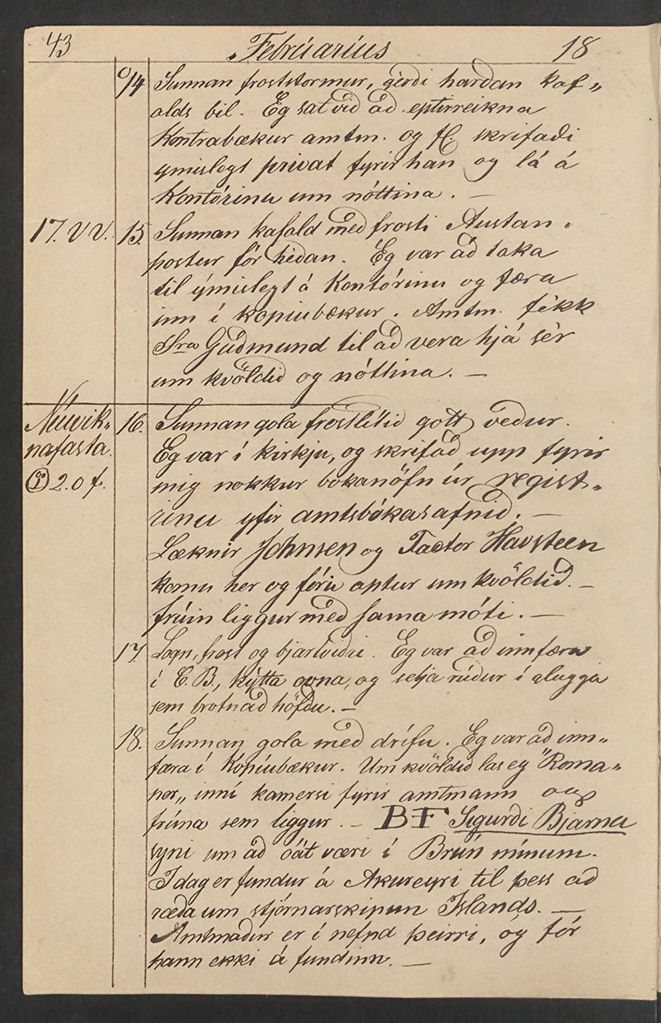 43 Februarius 18
14 Sunnan froststormur, gerdi hardan kaf„
alds bil. Eg sat vid ad eptirreikna
Kontrabækur amtm. og fl skrifadi
ymislegt privat fyrir han og lá á
Kontórinu um nóttina. —
17. v V. 15 Sunnan kafald med frosti Austan„
postur fór hédan. Eg var ad taka
til ýmislegt á Kontórinu og færa
inn í kopiubækur. Amtm. fékk
Sra Gudmund til ad vera hjá sér
um kvöldid og nóttina. —
Níuvik„ 16. Sunnan gola frostlitid gott vedur.
nafasta. Eg var í kirkju, og skrifad upp fyrir
2.0 f. mig nokkur bókanöfn úr regist„
rinu yfir amtsbókasafnid. —
Læknir Johnsen og Factor Havsteen
komu her og fóru aptur um kvöldid. —
frúin liggur med sama móti. —
17. Logn, frost og bjartvidri. Eg var ad innfæra
í C.B, kýtta ovna, og setja rúdur í glugga
sem brotnad höfdu. —
18. Sunnan gola med drífu. Eg var ad inn„
færa í Kopíubækur. Um kvöldid las eg "Roma„
ner„ inní kamersi fyrir amtmann og
frúna sem liggur. — BF Sigurdi Bjarna
syni um ad óát væri í Brún mínum.
I dag er fundur á Akureyri til þess ad
ræda um stjórnarskipun Islands. —
Amtmadur er í nefnd þeirri, og fór
hann ekki á fundinn. —